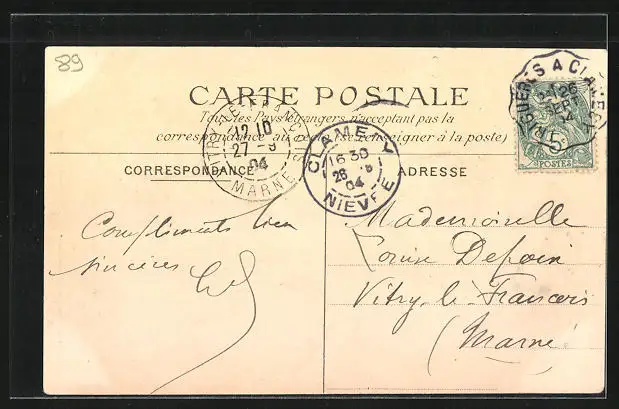 89
CARTE POSTALE
Tous les Pays étrangers n'acceptant pas la
correspondance au recto (se renseigner à la poste)
CORRESPONDANCE
ADRESSE
VITRY-LE-FRANCOIS
12 10
27 -9
04
MARNE
CLAMECY
16 30
26 -9
04
NIEVRE
A CLAMECY
26
SEPT
04
5
POSTES
Compliments bien
sincères
Mademoiselle
Louise
Vitry-le-François
(Marne)